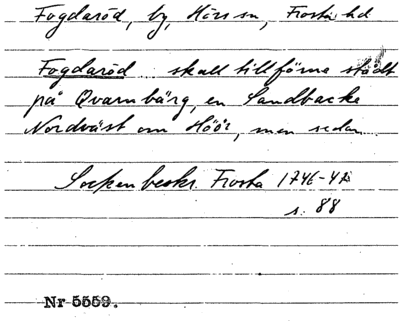 Fogdaröd, by, Hörs sn, Frosta hd
Fogdaröd skall tillförne stådt
på Qvarnbärg, en Sandbacke
Nordväst om Höör, men sedan
Sockenbeskr. Frosta 1746-47
s. 88
Nr 5559.